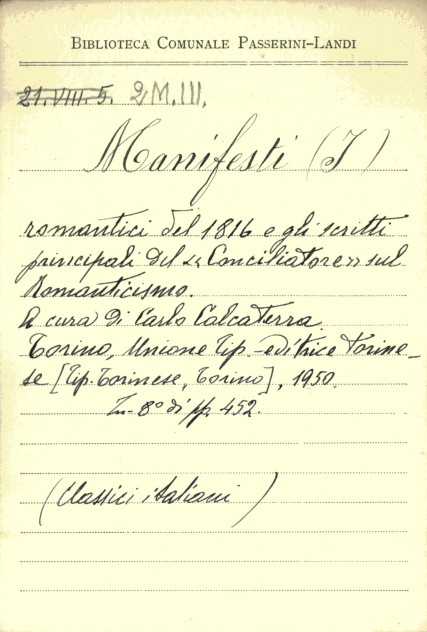 BIBLIOTECA COMUNALE PASSERINI-LANDI
21.VIII.5. 2M.III.
Manifesti (I)
romantici del 1816 e gli scritti
principali del «Conciliatore» sul
Romanticismo.
A cura di Carlo Calcaterra.
Torino, Unione Tip.-editrice torine-
se [Tip. Torinese, Torino], 1950.
In-8° di pp. 452.
(Classici italiani)